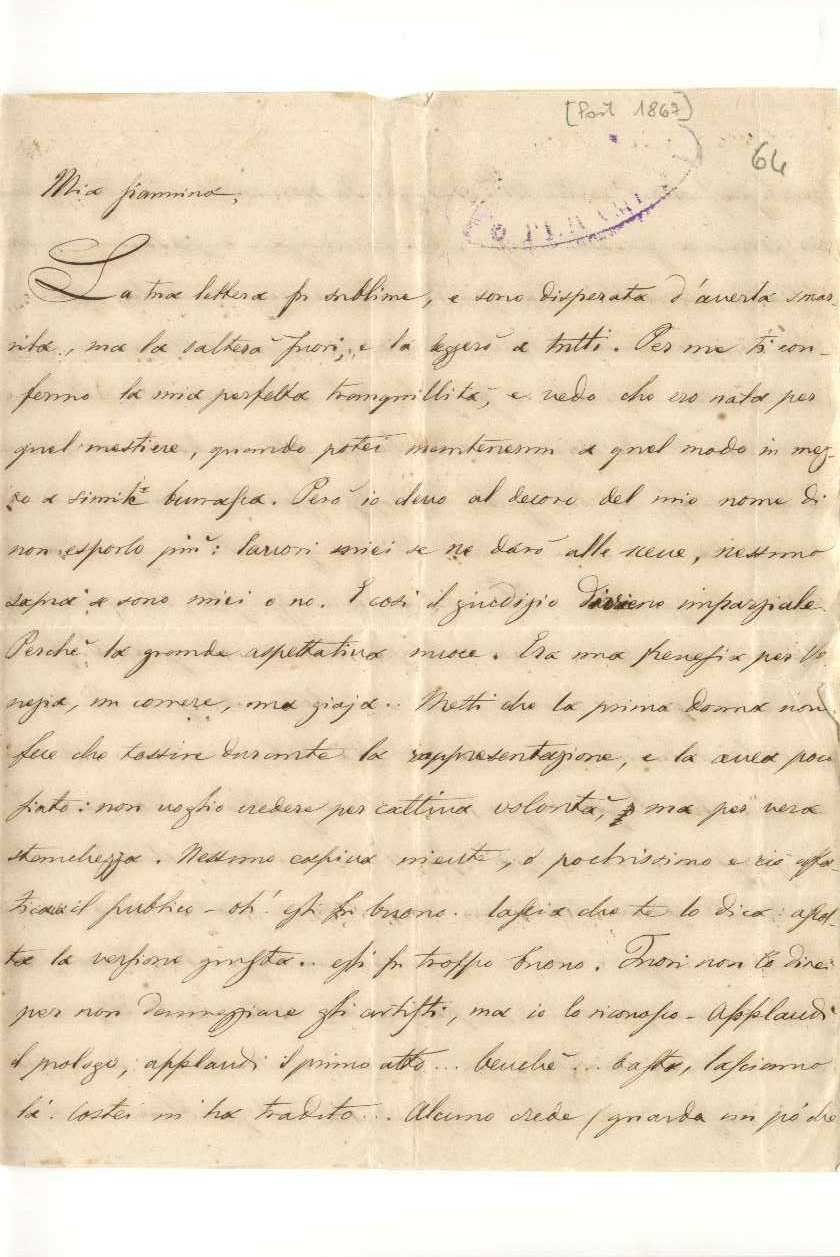 [Post 1867]
64
Mia Giannina,
La tua lettera fu sublime, e sono disperata d'averla smar-
rita, ma la salterà fuori, e la leggerò a tutti. Per me ti con-
fermo la mia perfetta tranquillità, e vedo che ero nata per
quel mestiere, quando potei mantenermi a quel modo in mez-
zo a simile burrasca. Però io devo al decoro del mio nome di
non esporlo più: lavori miei se ne darò alle scene, nessuno
saprà se sono miei o no. E così il giudizio diviene imparziale.
Perchè la grande aspettativa nuoce. Era una frenesia per Ve
nezia, un correre, una giaja.. Metti che la prima donna non
fece che tossire durante la rappresentazione, e la avea poco
fiato: non voglio credere per cattiva volontà, ma per vera
stanchezza. Nessuno capiva niente, o pochissimo e ciò
il publico - oh! esso fu buono. lascia che te lo dica: ascol-
ta la versione giusta.. esso fu troppo buono. Fuori non lo direi
per non danneggiare gli artisti, ma io lo riconosco - Applaudì
il prologo, applaudì il primo atto... benchè... basta, lasciamo
là. Costei m'ha tradito... Alcuno crede (guarda un pò che